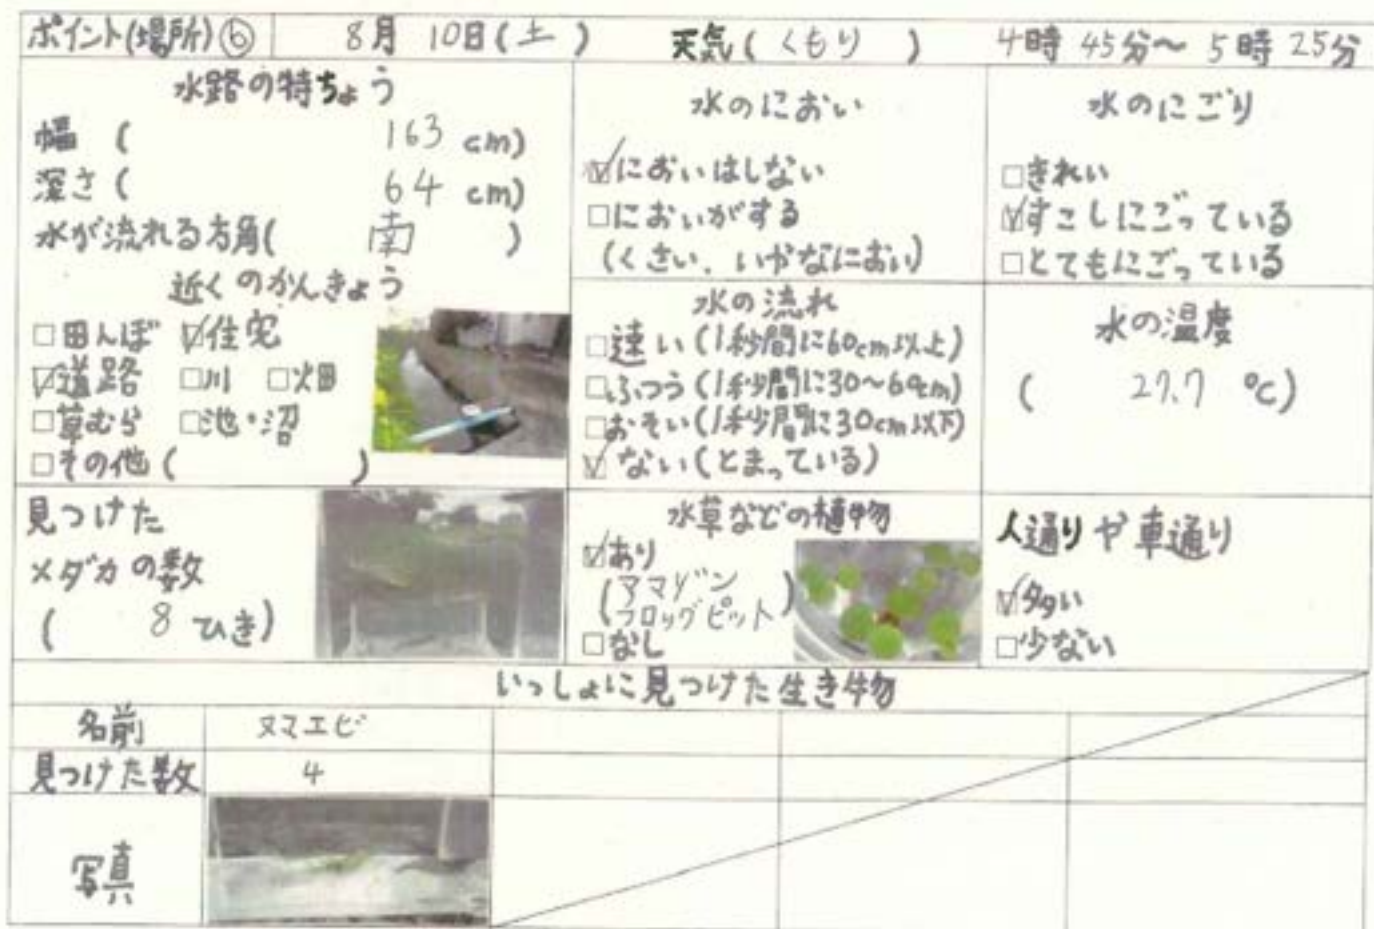 ポイント(場所)⑥ 8月 10日(土) 天気(くもり) 4時 45分〜5時 25分
水路の特ちょう
幅 ( 163 cm)
深さ ( 64 cm)
水が流れる方角( 南 )
近くのかんきょう
□田んぼ ☑住宅
☑道路 □川 □畑
□草むら □池・沼
□その他 ( )
水のにおい
☑においはしない
□においがする
(くさい、いやなにおい)
水のにごり
□きれい
☑すこしにごっている
□とてもにごっている
水の流れ
□速い(1秒間に60cm以上)
□ふつう(1秒間に30〜60cm)
□おそい(1秒間に30cm以下)
☑ない(とまっている)
水の温度
( 27.7 ℃)
見つけた
メダカの数
( 8 ひき)
水草などの植物
☑あり
(アマゾン
フロッグピット)
□なし
人通りや車通り
☑多い
□少ない
いっしょに見つけた生き物
名前 ヌマエビ
見つけた数 4
写真